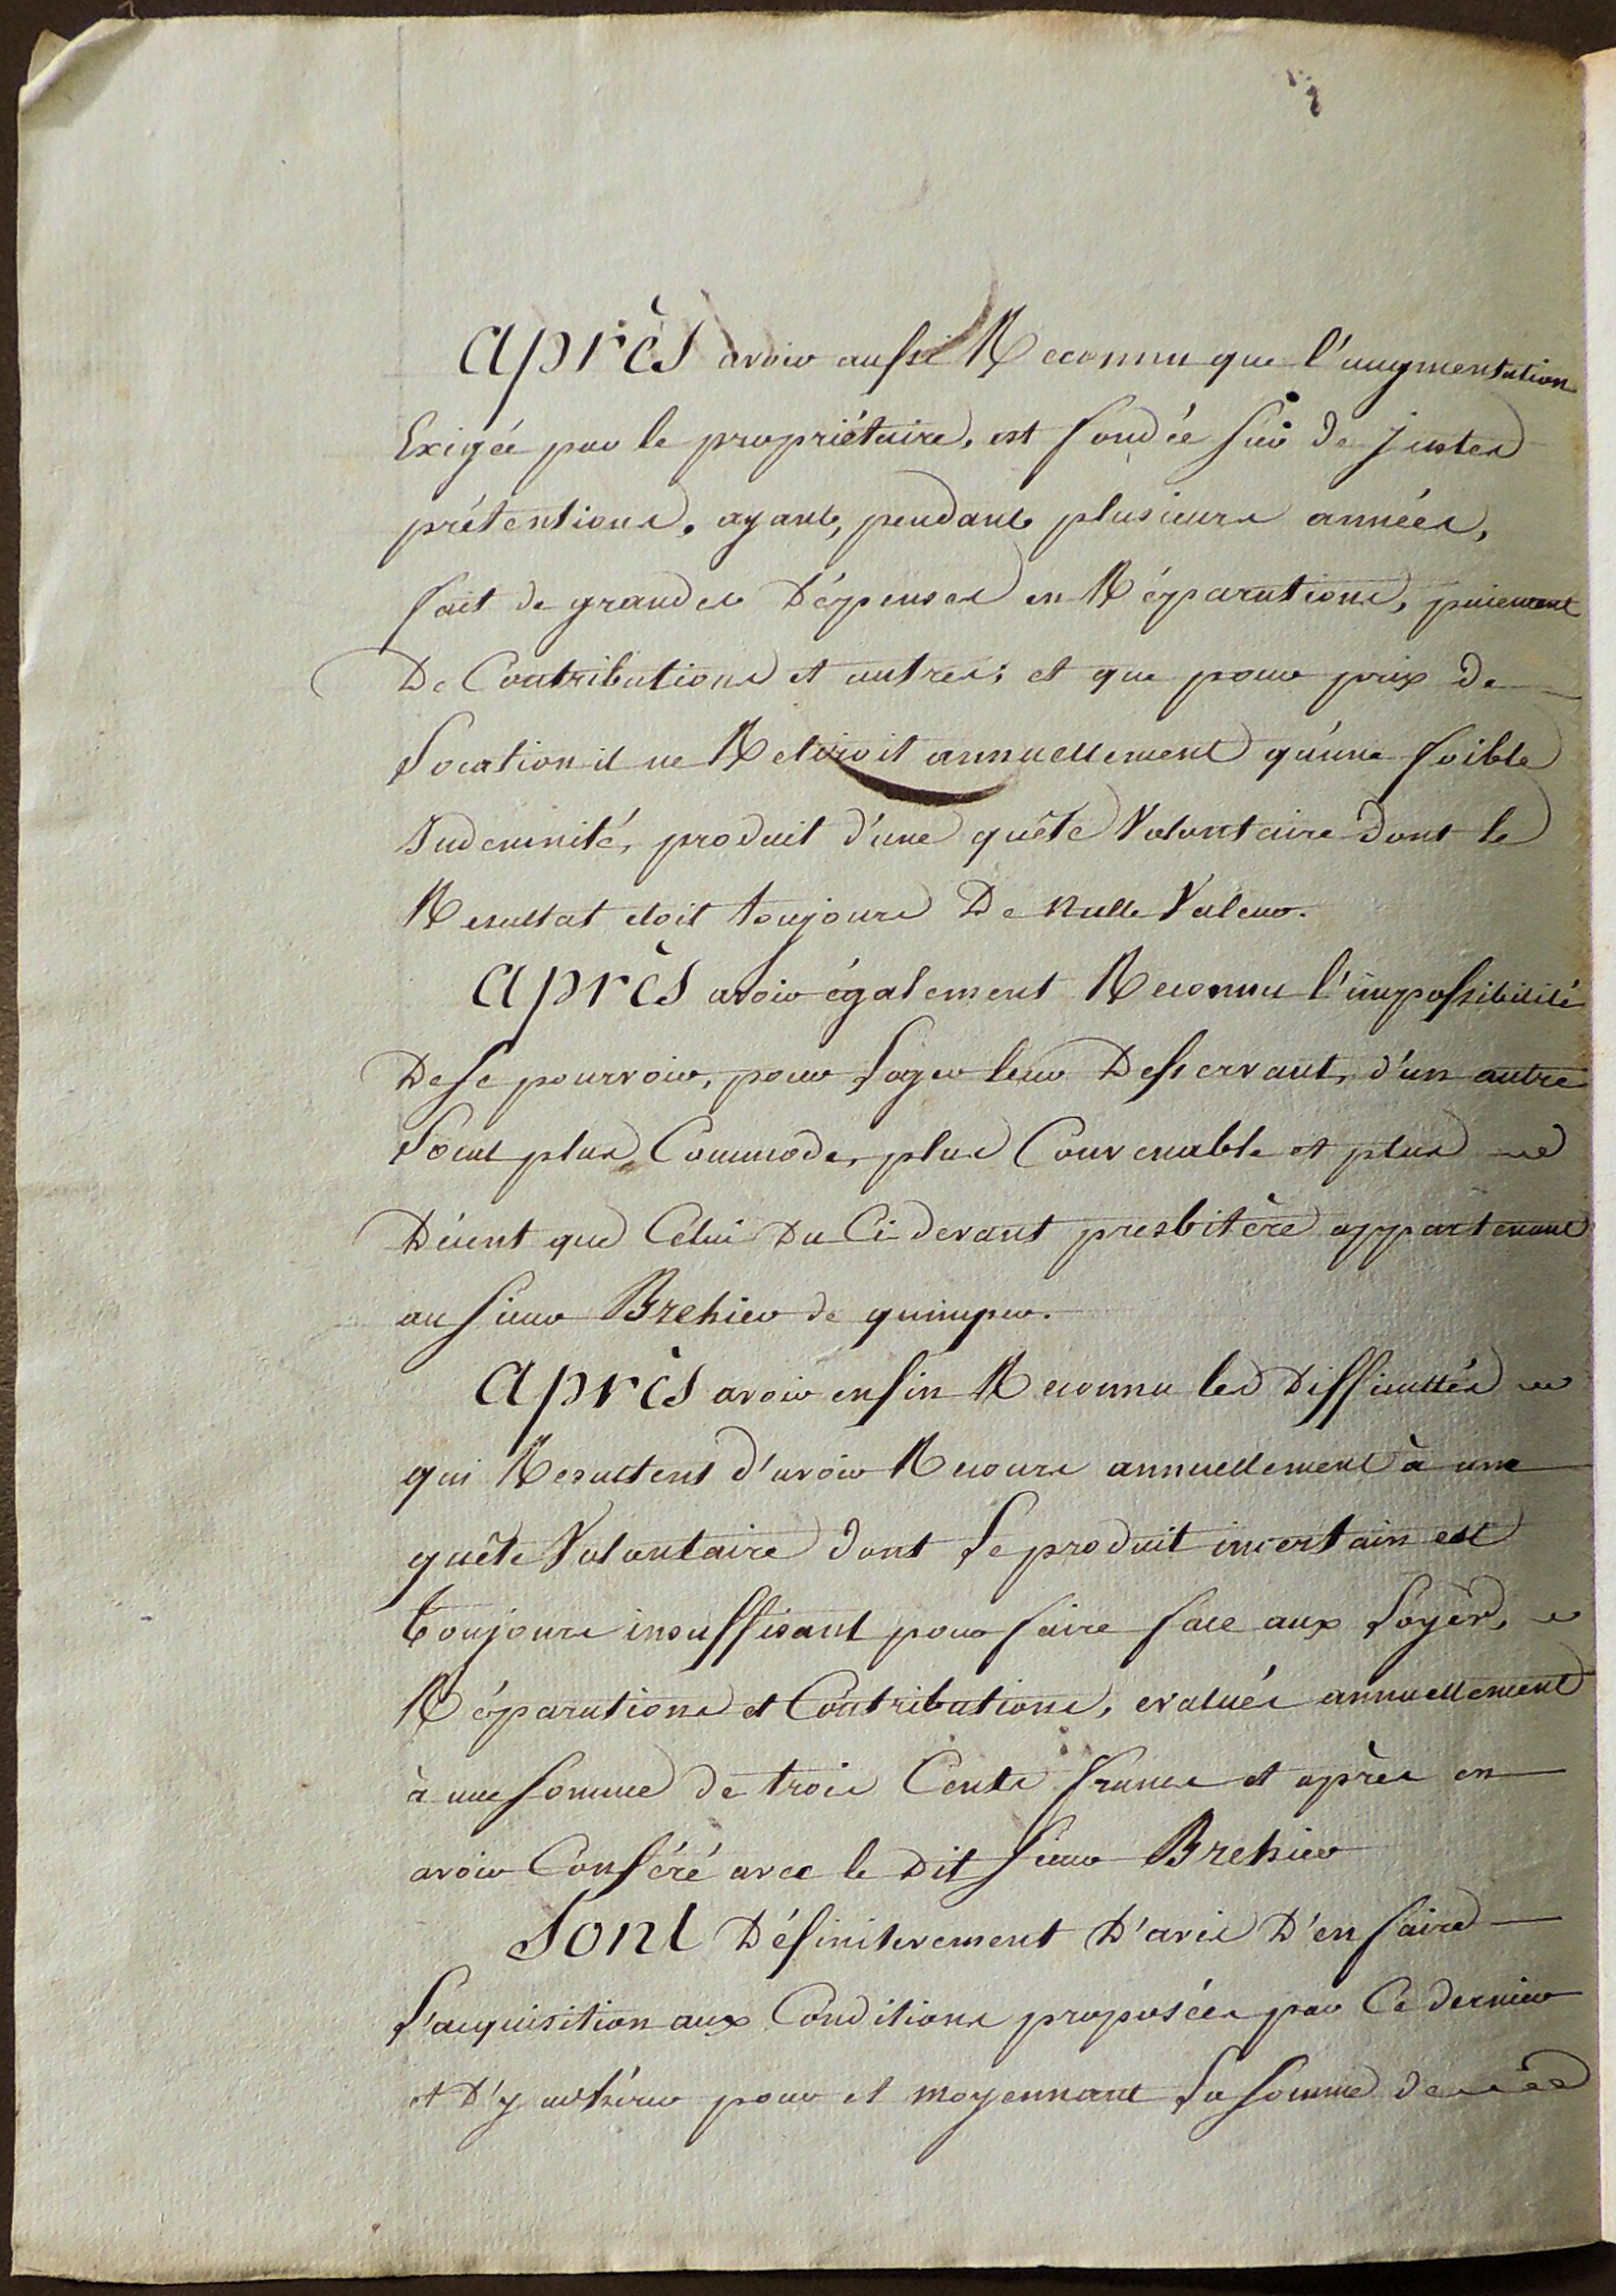 Après avoir aussi Reconnu que l'augmentation
Exigée par le propriétaire, est fondée sur de justes
prétentions, ayant, pendant plusieurs années,
fait de grandes Dépenses en Réparations, paiement
De Contributions et autres; et que pour prix de
Location il ne Retiroit annuellement qu'une foible
Indemnité, produit d'une quête Volontaire dont le
Resultat etoit toujours De nulle Valeur.
Après avoir également Reconnu l'impossibilité
De se pourvoir, pour Loger leur Desservant, d'un autre
Local plus Commode, plus Convenable et plus
Décent que Celui Du Ci-devant presbitère appartenant
au Sieur Brehier de quimper.
Après avoir enfin Reconnu les Difficultés
qui Resultent d'avoir Recours annuellement à une
quête Volontaire dont Le produit incertain est
Toujours insuffisant pour faire face aux Loyer,
Réparations et Contributions, evalués annuellement
à une somme de trois Cents francs et après en
avoir Conféré avec le Dit Sieur Brehier
Sont Définitivement D'avis D'en faire
L'acquisition aux Conditions proposées par Ce dernier
et D'y adhérer pour et moyennant La somme de